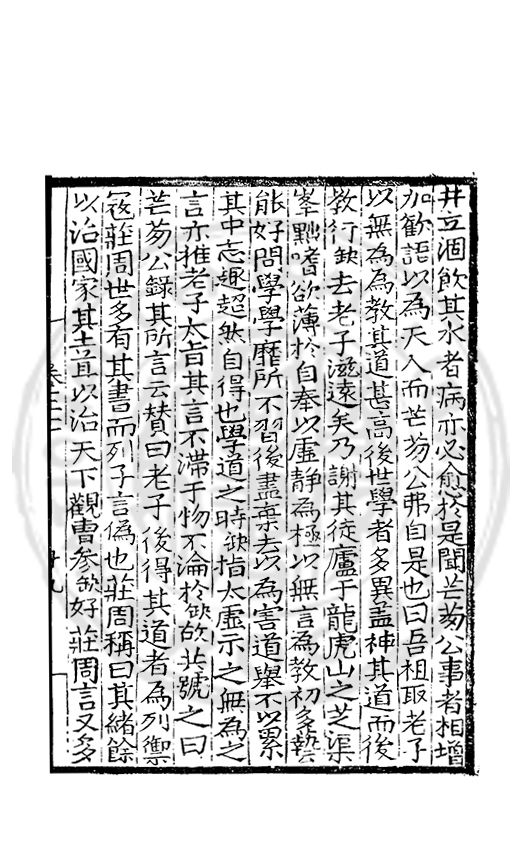 井立涸飲其水者病亦必愈於是聞芒芴公事者相增
加歡語以為天人而芒芴公弗自是也曰吾祖取老子
以無為為教其道甚高後世學者多異盖神其道而後
教行欤去老子滋遠矣乃謝其徒廬于龍虎山之芝渠
峯黜嗜欲薄於自奉以虛静為極以無言為教初多藝
能好問學學靡所不習後盡棄去以為害道舉不以累
其中志趣超然自得也學道之時欤指太虛示之無為之
言亦推老子太㫖其言不滯于物不淪於欤故共號之曰
芒芴公錄其所言云賛曰老子後得其道者為列禦
宼莊周世多有其書而列子言偽也莊周稱曰其緒餘
以治國家其土苴以治天下觀曹參欤好莊周言又多
卷三十二
十九